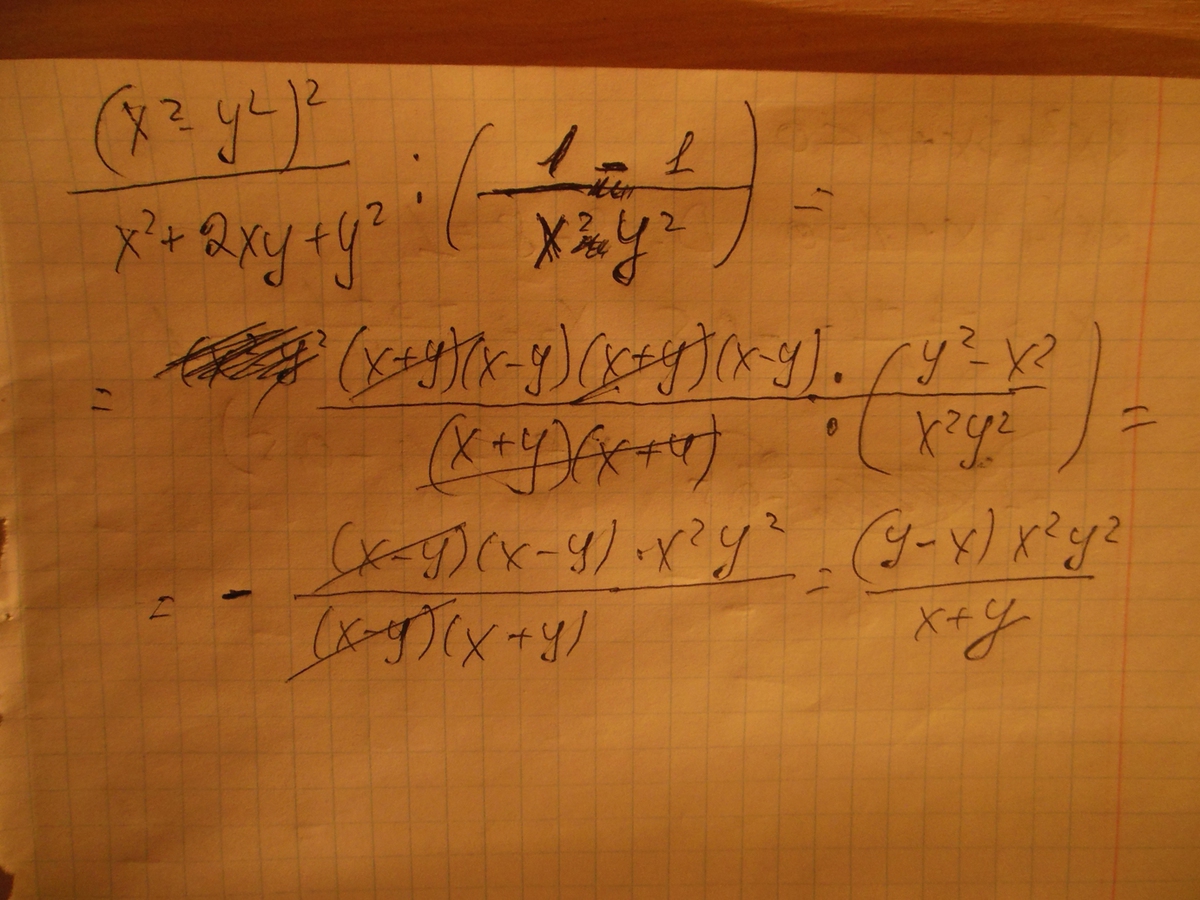 (x² - y²)² / x² + 2xy + y² : (1 - 1 / x² y²) =
= (x+y)(x-y)(x+y)(x-y) / (x+y)(x+y) : (y² - x² / x²y²) =
= - (x-y)(x-y) · x² y² / (x-y)(x+y) = (y-x) x² y² / x+y